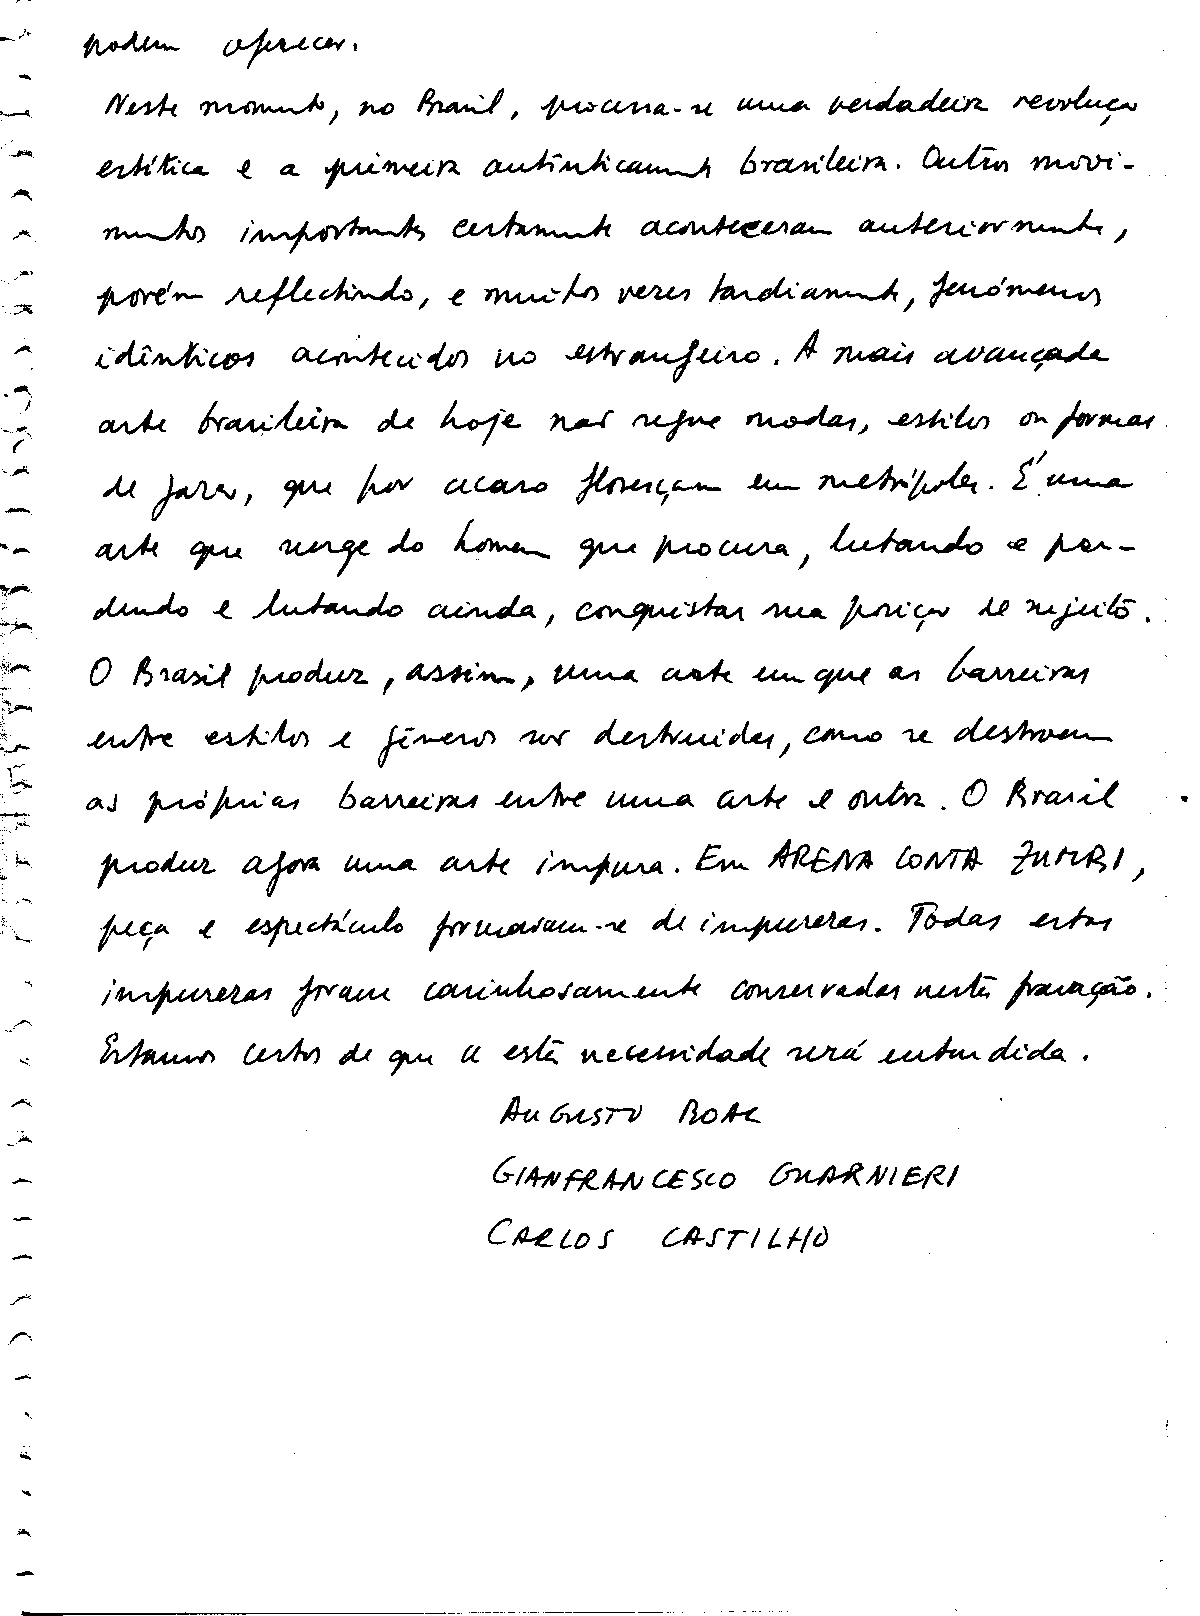 podem oferecer.
Neste momento, no Brasil, processa-se uma verdadeira revolução
estética e a primeira autênticamente brasileira. Outros movi-
mentos importantes certamente aconteceram anteriormente,
porém reflectindo, e muitas vezes tardiamente, fenómenos
idênticos acontecidos no estrangeiro. A mais avançada
arte brasileira de hoje não segue modas, estilos ou formas
de fazer, que por acaso floresçam em metrópoles. É uma
arte que surge do homem que procura, lutando e per-
dendo e lutando ainda, conquistar sua posição de sujeito.
O Brasil produz, assim, uma arte em que as barreiras
entre estilos e géneros são destruidas, como se destroem
as próprias barreiras entre uma arte e outra. O Brasil
produz agora uma arte impura. Em ARENA CONTA ZUMBI,
peça e espectáculo formaram-se de impurezas. Todas estas
impurezas foram carinhosamente conservadas nesta gravação.
Estamos certos de que a esta necessidade será entendida.
AUGUSTO BOAL
GIANFRANCESCO GUARNIERI
CARLOS CASTILHO